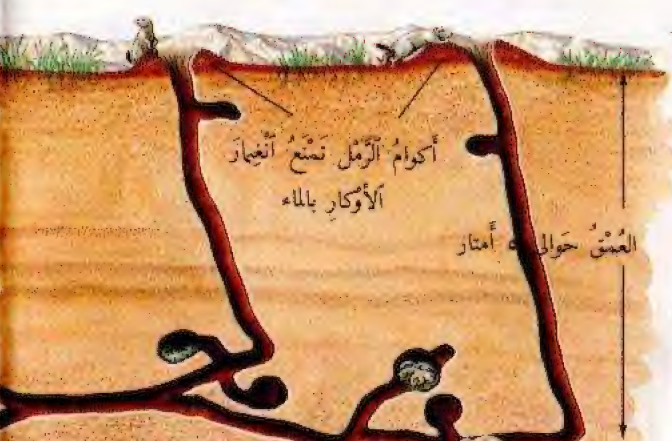 أَكوامُ ٱلرَّمْل تَمْنَعُ ٱنْغِمارَ
ٱلأَوْكارِ بالماء
العُمْقُ حَوالى ٥ أَمتار